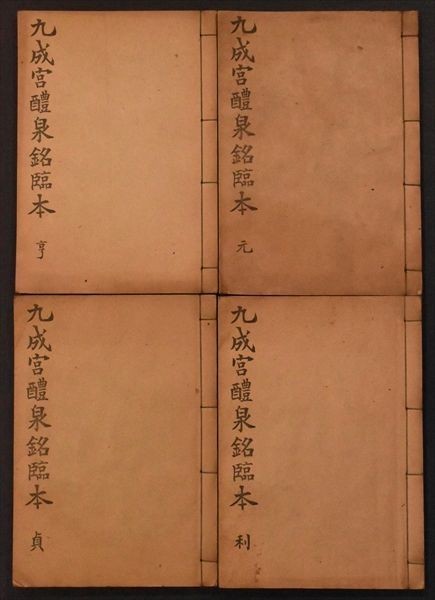 九成宮醴泉銘臨本 元
九成宮醴泉銘臨本 亨
九成宮醴泉銘臨本 利
九成宮醴泉銘臨本 貞